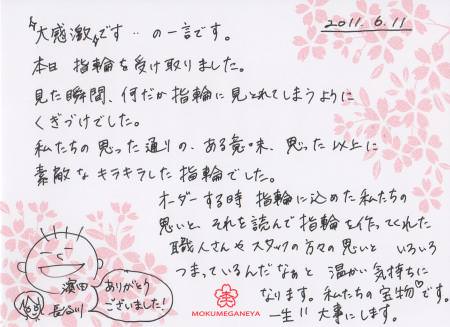 2011. 6. 11
"大感激"です‥の一言です。
本日 指輪を受け取りました。
見た瞬間、何だか指輪に見とれてしまうように
くぎづけでした。
私たちの思った通りの、ある意味、思った以上に
素敵なキラキラした指輪でした。
オーダーする時 指輪に込めた私たちの
思いと、それを読んで指輪を作ってくれた
職人さんやスタッフの方々の思いと いろいろ
つまっているんだなぁと 温かい気持ちに
なります。私たちの宝物♡です。
一生!! 大事にします。
濱田
長谷川
ありがとう
ございました!
MOKUMEGANEYA